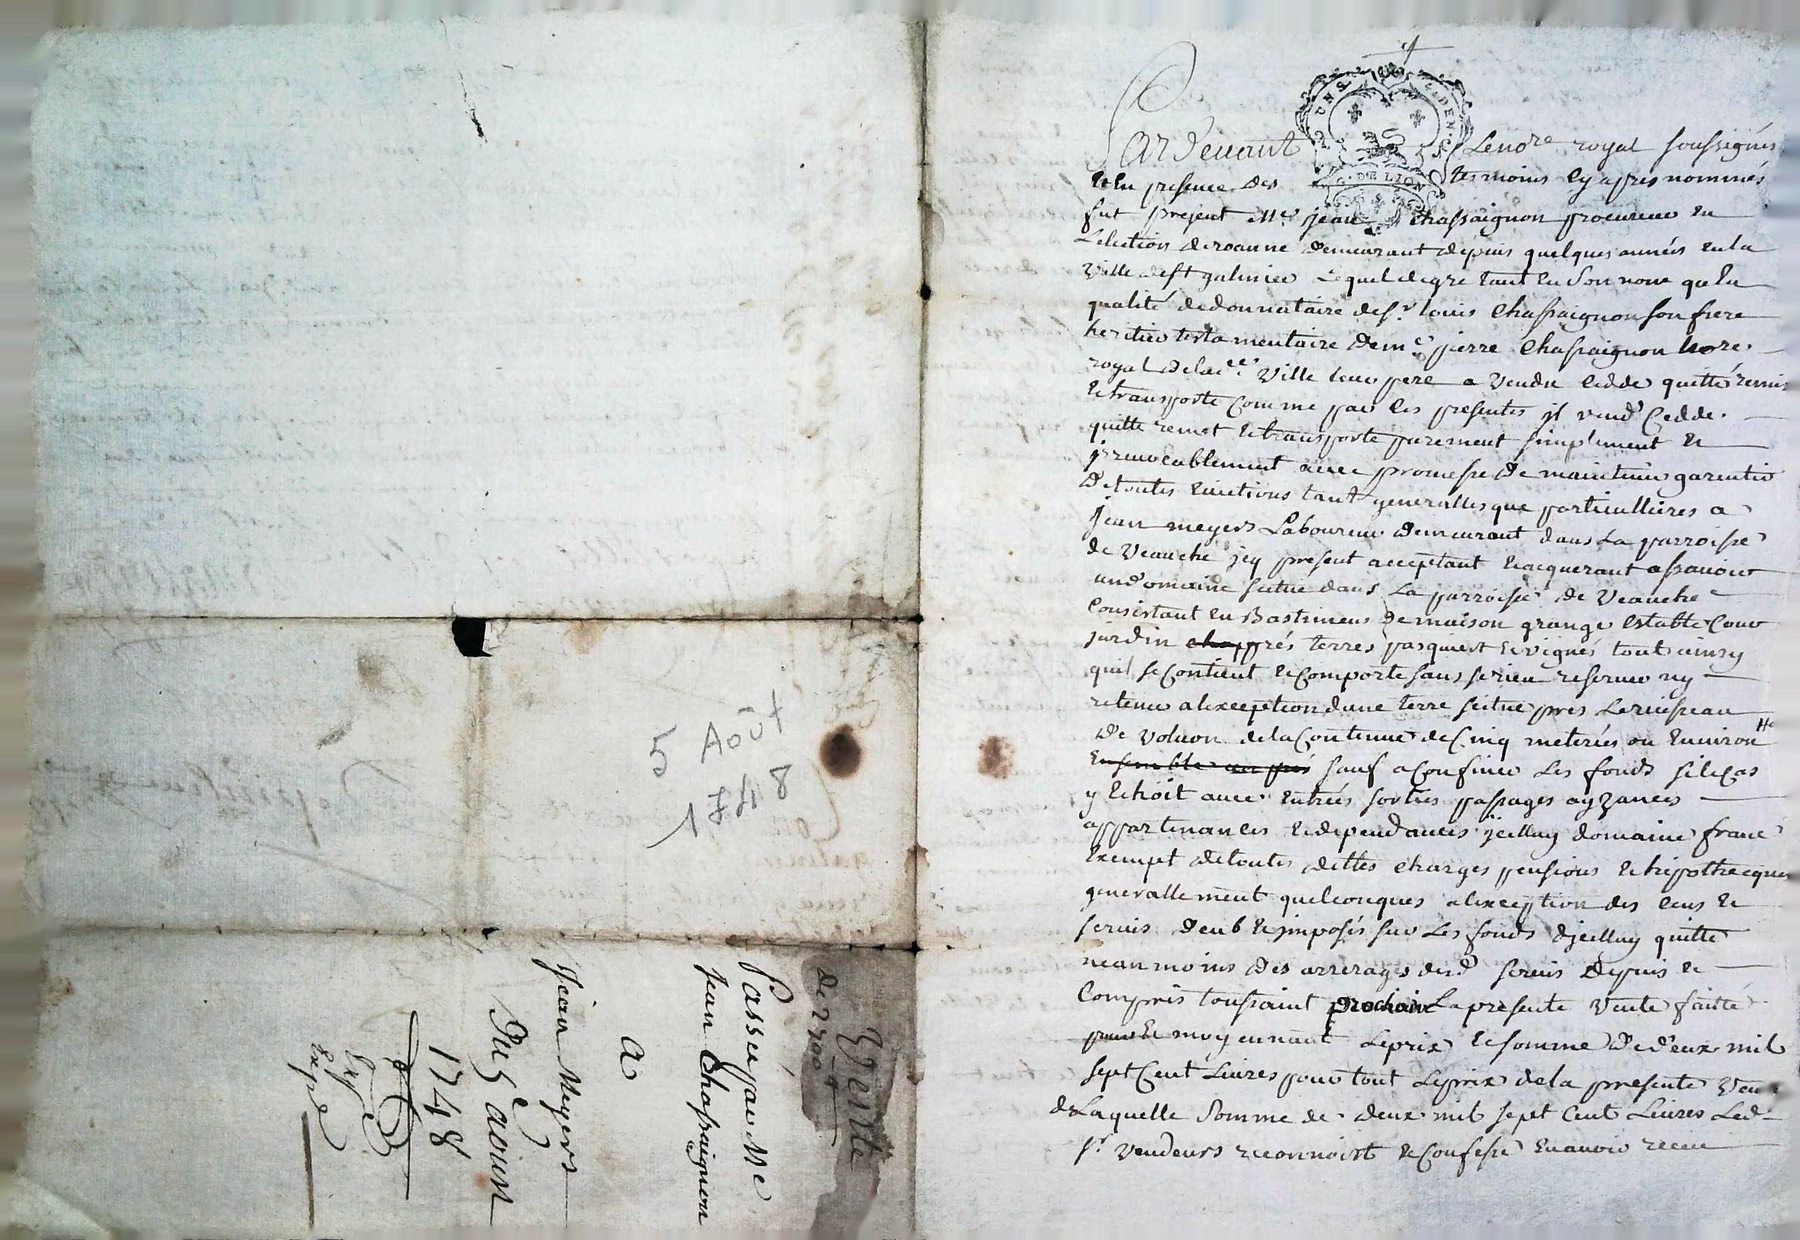 5 Août
1748
Vente
de 2700 #
Passée par Me
Jean Chassaignon
a
Jean Meyers
Du 5 aoust
1748
Expé
Expé
G. DE LION
Pardevant Le nore royal soussignés
et En presence des tesmoins cy apres nommés
fut present Me jean chassaignon procureur En
Lelection de roanne demeurant depuis quelques années En la
Ville de st galmier Lequel de gré tant En Son nom qu'En
qualité de donnataire de sr louis Chassaignon son frere
heritier testamentaire de me pierre Chassaignon nore
royal de lad.e Ville leur pere a Vendu cedde quitté remis
Et transporte comme par les presentes jl vend Cedde
quitte remet Et transporte purement simplement Et
jrrevocablement avec promesse de maintenir garentir
De toutes Evictions tant generalles que particullieres a
Jean meyers Laboureur demeurant dans La parroisse
de Veauche jcy present acceptant Et acquerant assavoir
un domaine scitué dans La parroisse de Veauche
Consistant En Bastimens de maison grange Estable Cour
jardin chap prés terres pasquiers Et vignes tout ainsy
quil se Contient Et Comporte sans se rien reserver ny
retenir a lexception dune terre scitue pres Le ruisseau
de Volvon de la Contenue de Cinq meterées ou Environ
Ensemble un pré sauf a Confiner Les fonds si le Cas
y Echoit avec Entrées sorties passages ayzances
appartenances Et dependances jcelluy domaine franc
Exempt de toutes dettes charges pensions Et hipothecques
generallement quelconques a lexception des cens Et
servis deub Et jmposés sur Les fonds djcelluy quitte
neanmoins des arrerages desd servis depuis Et
Compris toussaint prochain La presente Vente faitte
pour Et moyennant Le prix Et somme De deux mil
sept Cent Livres pour tout Le prix de la presente Vente
de Laquelle Somme de deux mil sept Cent Livres Led
sr Vendeurs reconnoist Et Confesse En avoir receu